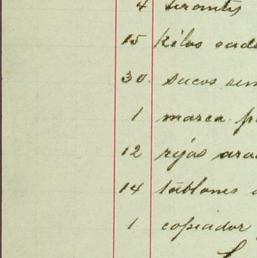 4 tirantes
15 kilos
30 sacos
1 marca
12 rejas
14 tablones
1 copiador